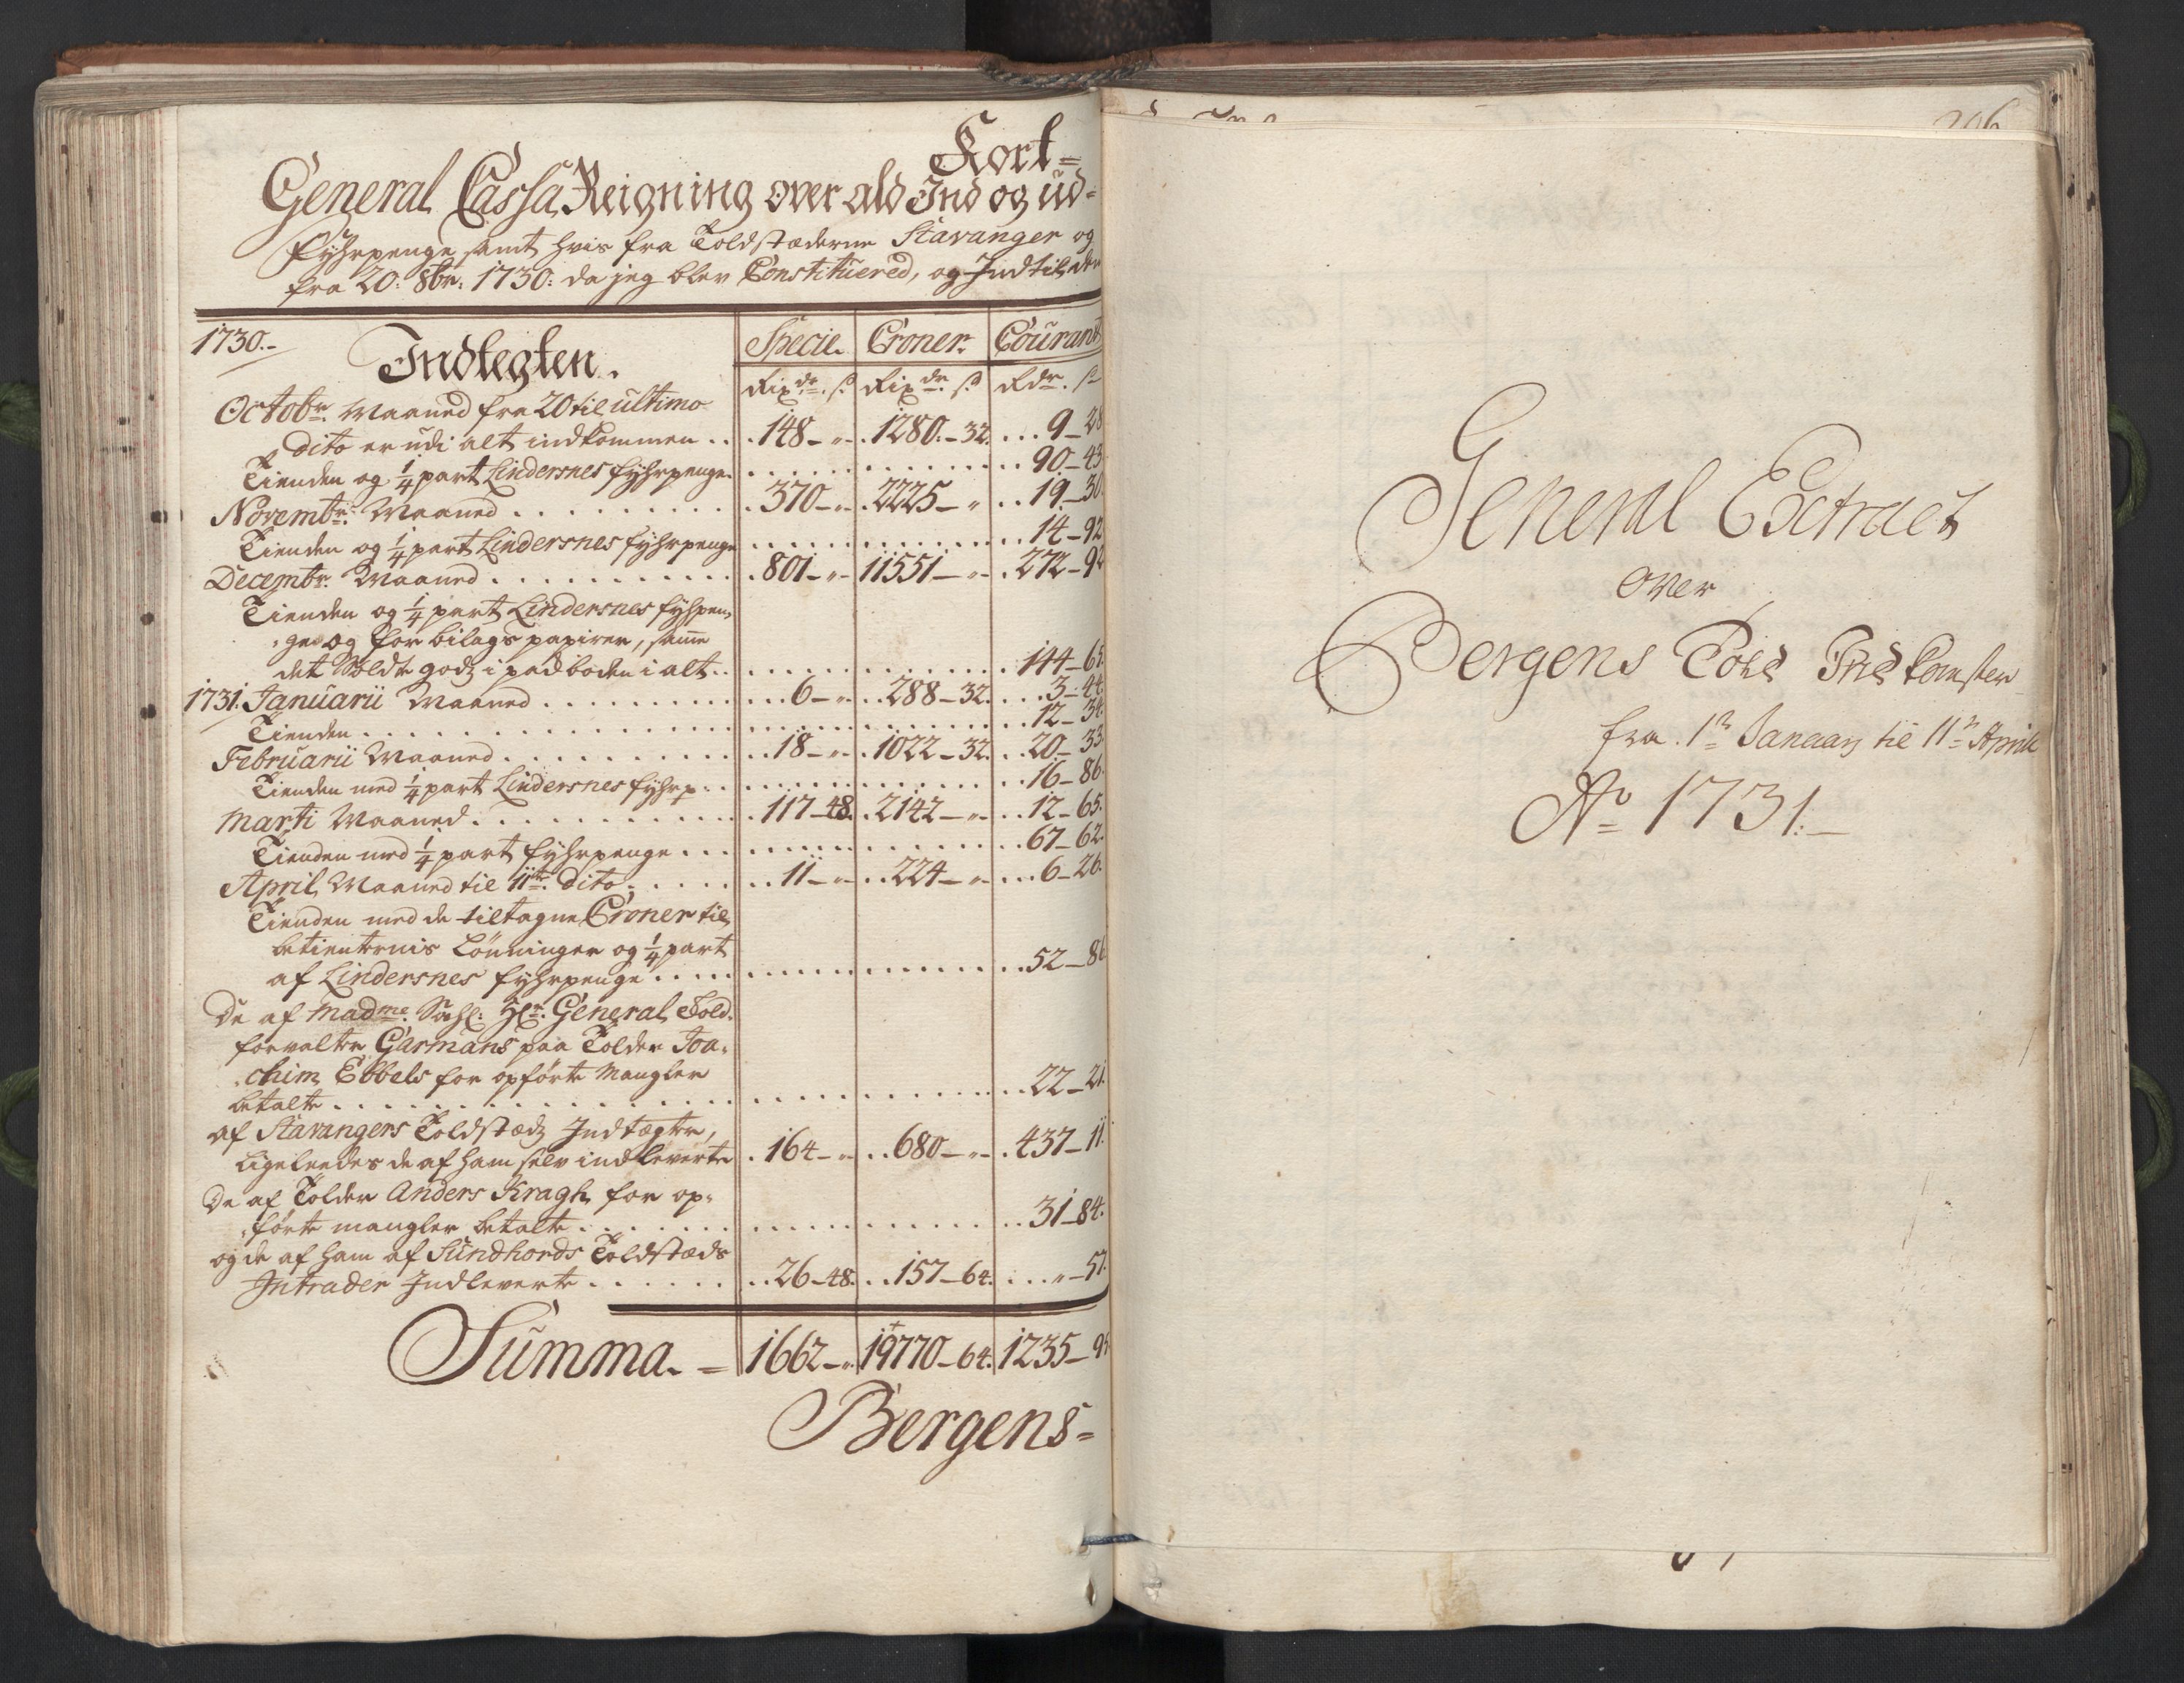 Kort-
General Cassa Reigning over ald Ind og ud-
fyhrpenge, samt hvis fra Toldstæderne Stavanger og
fra 20: 8br: 1730: da jeg blev Constituered, og Indtil den
1730.- Indtegten. Specie. Croner. Courant
Rixdr. ß Rixdr. ß Rdr. ß
Octobr. Maaned fra 20 til ultimo
dito er udi alt indkommen . . . 148 - " - . 1280. - 32. . . . 9 - 28
Tienden og 1/4 part Lindersnes fyhrpenge . . . . . . 90 - 43
Novembr. Maaned . . . . 370 - " - . 2225 - " . . 19 - 30.
Tienden og 1/4 part Lindersnes fyhrpenge . . . . . . 14 - 92
Decembr. Maaned . . . . 801 - " - 11551 - " - . 272 - 92
Tienden og 1/4 part Lindersnes fyhpen-
ge og for bilags papirer, samt
det Soldte godz i pakboden i alt . . . . . . 144 - 62
1731. Januarii Maaned . . . . 6 - " - . . 288 - 32. . . . 3 - 44.
Tienden . . . . . . 12 - 34.
Februarii Maaned . . . . 18 - " - . 1022 - 32. . . 20 - 33.
Tienden med 1/4 part Lindersnes fyhrp: . . . . . . 16 - 86.
Marti Maaned . . . . 117 - 48. . 2142 - " - . . 12 - 65.
Tienden med 1/4 part fyhrpenge . . . . . . 67 - 62.
April Maaned til 11te. dito . . . . 11 - " - . . 224 - " - . . . 6 - 26.
Tienden med de tiltagne Croner til
betienternis Lønninger og 1/4 part
af Lindersnes fyhrpenge . . . . . . 52 - 86
De af Madme. Sahl: Hr. General Told-
forvalter Garmans paa Tolder Joa-
chim Ebbels for opførte Mangler
betalte . . . . . . 22 - 21.
af Stavangers Toldstædz Indtægter,
ligeleedes de af ham selv indleverte . 164 - " - . . 680 - " - . 437 - 11.
De af Tolder Anders Kragh for op-
førte mangler betalte . . . . . . 31 - 84.
og de af ham af Sundhords Toldstæds
Intrader Indleverte . . . . 26 - 48. . . 157 - 64. . . . " - 57.
Summa. - 1662 - " - 19770 - 64. 1235 - 95
Bergens-
206
General Extract
Over
Bergens Told Indkomster
fra. 1te Januarj til 11te Aprill
Ao 1731.-